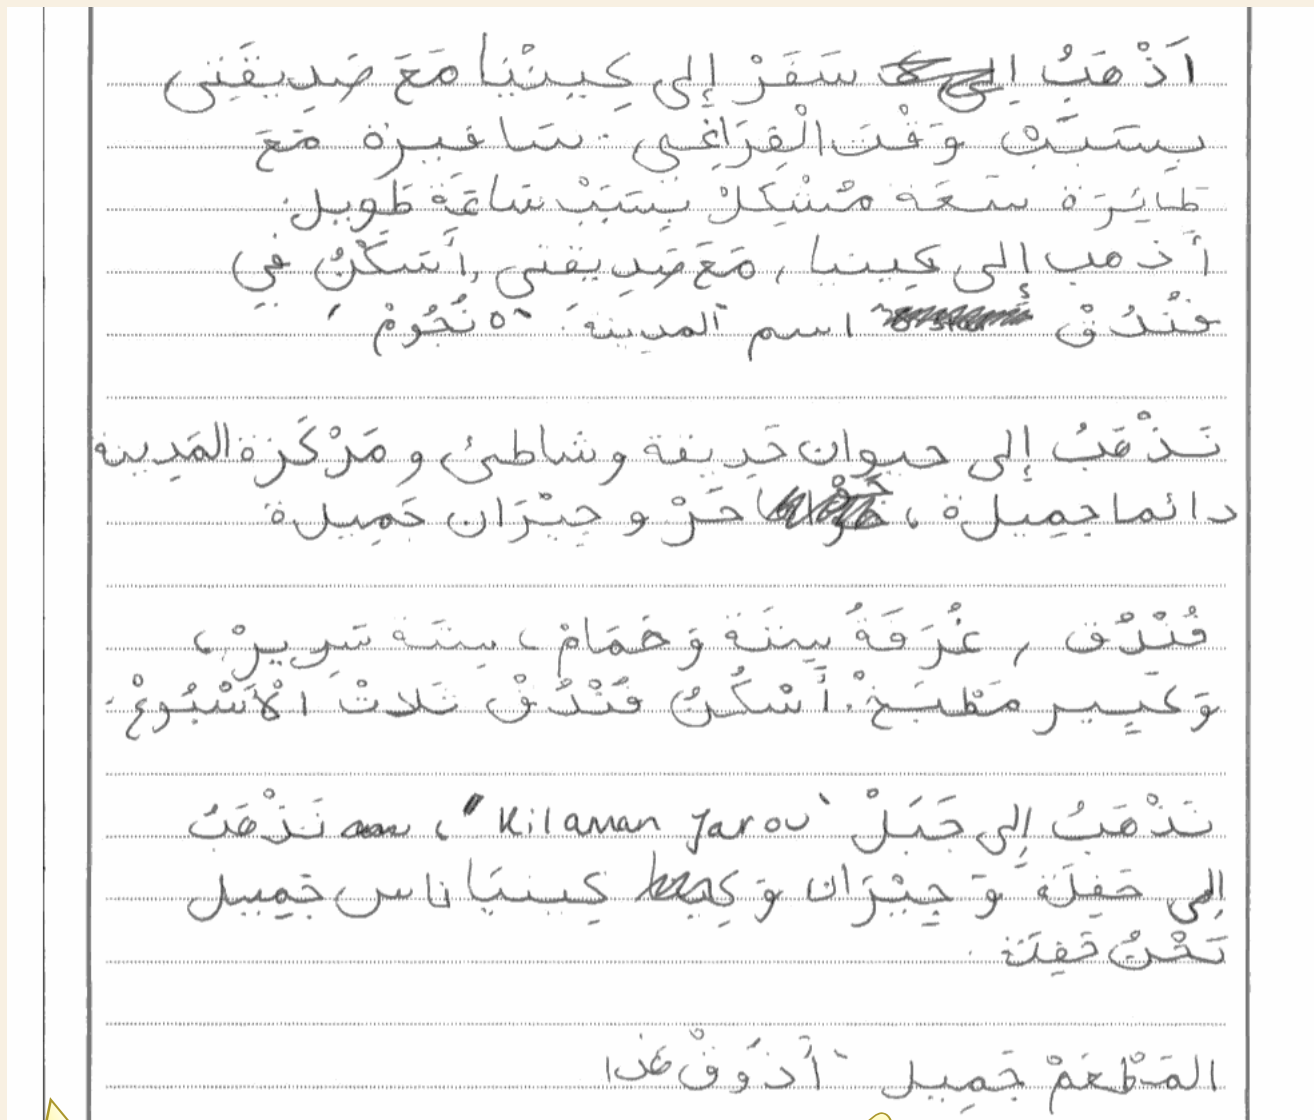 اَذْهَبُ إِلى سَفَرْ إِلى كِينْيَا مَعَ صَدِيقَتِى
بِسَبَبْ وَقْت الْفَرَاغِى. سَافيرة مَعَ
طَائِرَة سَعَة مُشْكِلْ بِسَبَبْ سَاعَة طَوِيل.
أذهب إلى كينيا, مَعَ صَدِيقتى, أَسْكُنُ فِي
فُنْدُقْ اسم المدينة. "٥ نُجُومْ"
نَذْهَبُ إلى حيوان حَدِيقة وشاطئ و مَرْكَزة المَدِينة
دائما جميلة، حَرْ و جِيْرَان جَمِيلة
فُنْدُق, غُرفَةُ سِتَة وَحَمَامْ، سِتَة سَرِيرْ،
وَكَبِير مَطْبَخْ. أَسْكُنُ فُنْدُقْ ثَلاثْ الْأَسْبُوعْ.
نَذْهَبُ إِلى جَبَلْ "Kilaman Jarou"، نَذْهَبُ
إِلى حَفِلَة وَ جِيْرَان وَ كِينيَا ناس جَمِيل
نَحْنُ حَفِلَة.
المَطْعَمْ جَمِيل "أَذَوقْ